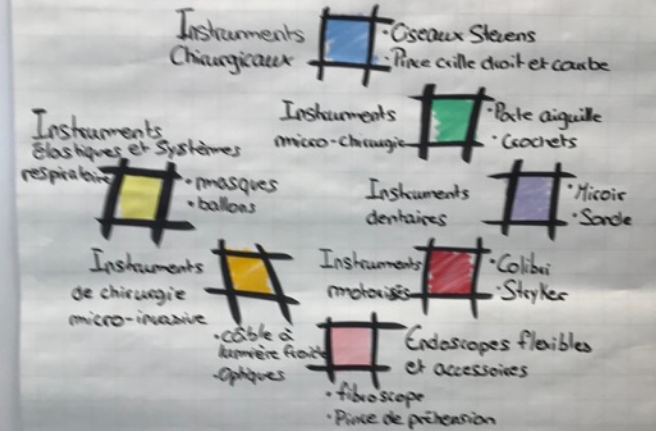 Instruments
Chirurgicaux
• Ciseaux Stevens
• Pince crille droit et courbe
Instruments
micro-chirurgie
• Porte aiguille
• Crochets
Instruments
élastiques et Systèmes
respiratoire
• masques
• ballons
Instruments
dentaires
• Miroir
• Sonde
Instruments
de chirurgie
micro-invasive
• câble à
lumière froide
• Optiques
Instruments
motorisés
• Colibri
• Stryker
Endoscopes flexibles
et accessoires
• fibroscope
• Pince de préhension